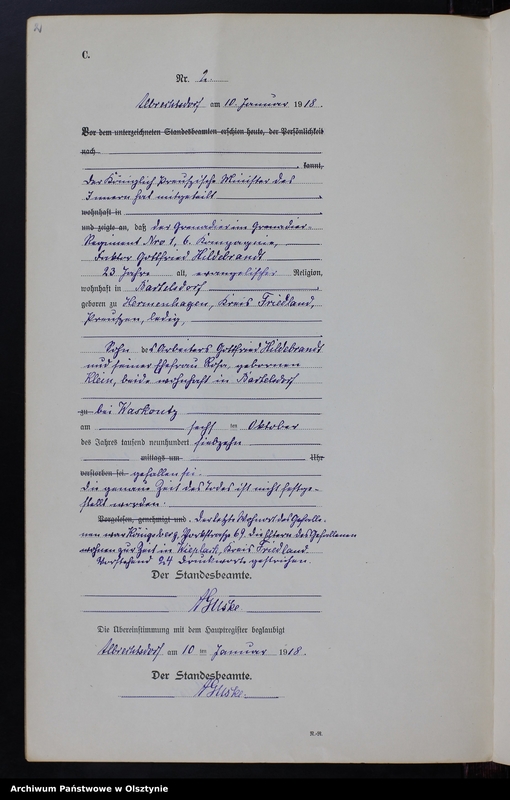 C.
Nr. 2.
Albrechtsdorf am 10. Januar 1918.
Vor dem unterzeichneten Standesbeamten erschien heute, der Persönlichkeit
nach
kannt,
Der Königlich Preußische Minister des
Innern hat mitgeteilt
wohnhaft in
und zeigte an, daß der Grenadier im Grenadier-
Regiment Nro 1, 6. Kompagnie,
Gottfried Hildebrandt
23 Jahre alt, evangelischer Religion,
wohnhaft in Bartelsdorf
geboren zu Hermenhagen, Kreis Friedland,
Preußen, ledig,
Sohn des Arbeiters Gottfried Hildebrandt
und seiner Ehefrau Rosa, geborenen
Klein, beide wohnhaft in Bartelsdorf
zu bei Waskontz
am sechs ten Oktober
des Jahres tausend neunhundert siebzehn
mittags um Uhr
verstorben sei. gefallen sei.
Die genaue Zeit des Todes ist nicht festge-
stellt worden.
Vorgelesen, genehmigt und . Der letzte Wohnort des Gefalle-
nen war Königsberg, 69. Die Eltern des Gefallenen
wohnen zur Zeit in Kreis Friedland.
Vorstehend 24 Druckworte gestrichen.
Der Standesbeamte.
Die Übereinstimmung mit dem Hauptregister beglaubigt
Albrechtsdorf am 10 ten Januar 1918.
Der Standesbeamte.
Archiwum Państwowe w Olsztynie